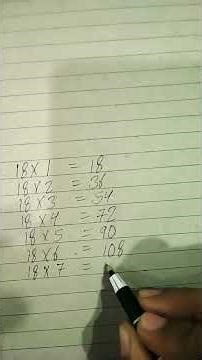 18 x 1 = 18
18 x 2 = 36
18 x 3 = 54
18 x 4 = 72
18 x 5 = 90
18 x 6 = 108
18 x 7 =